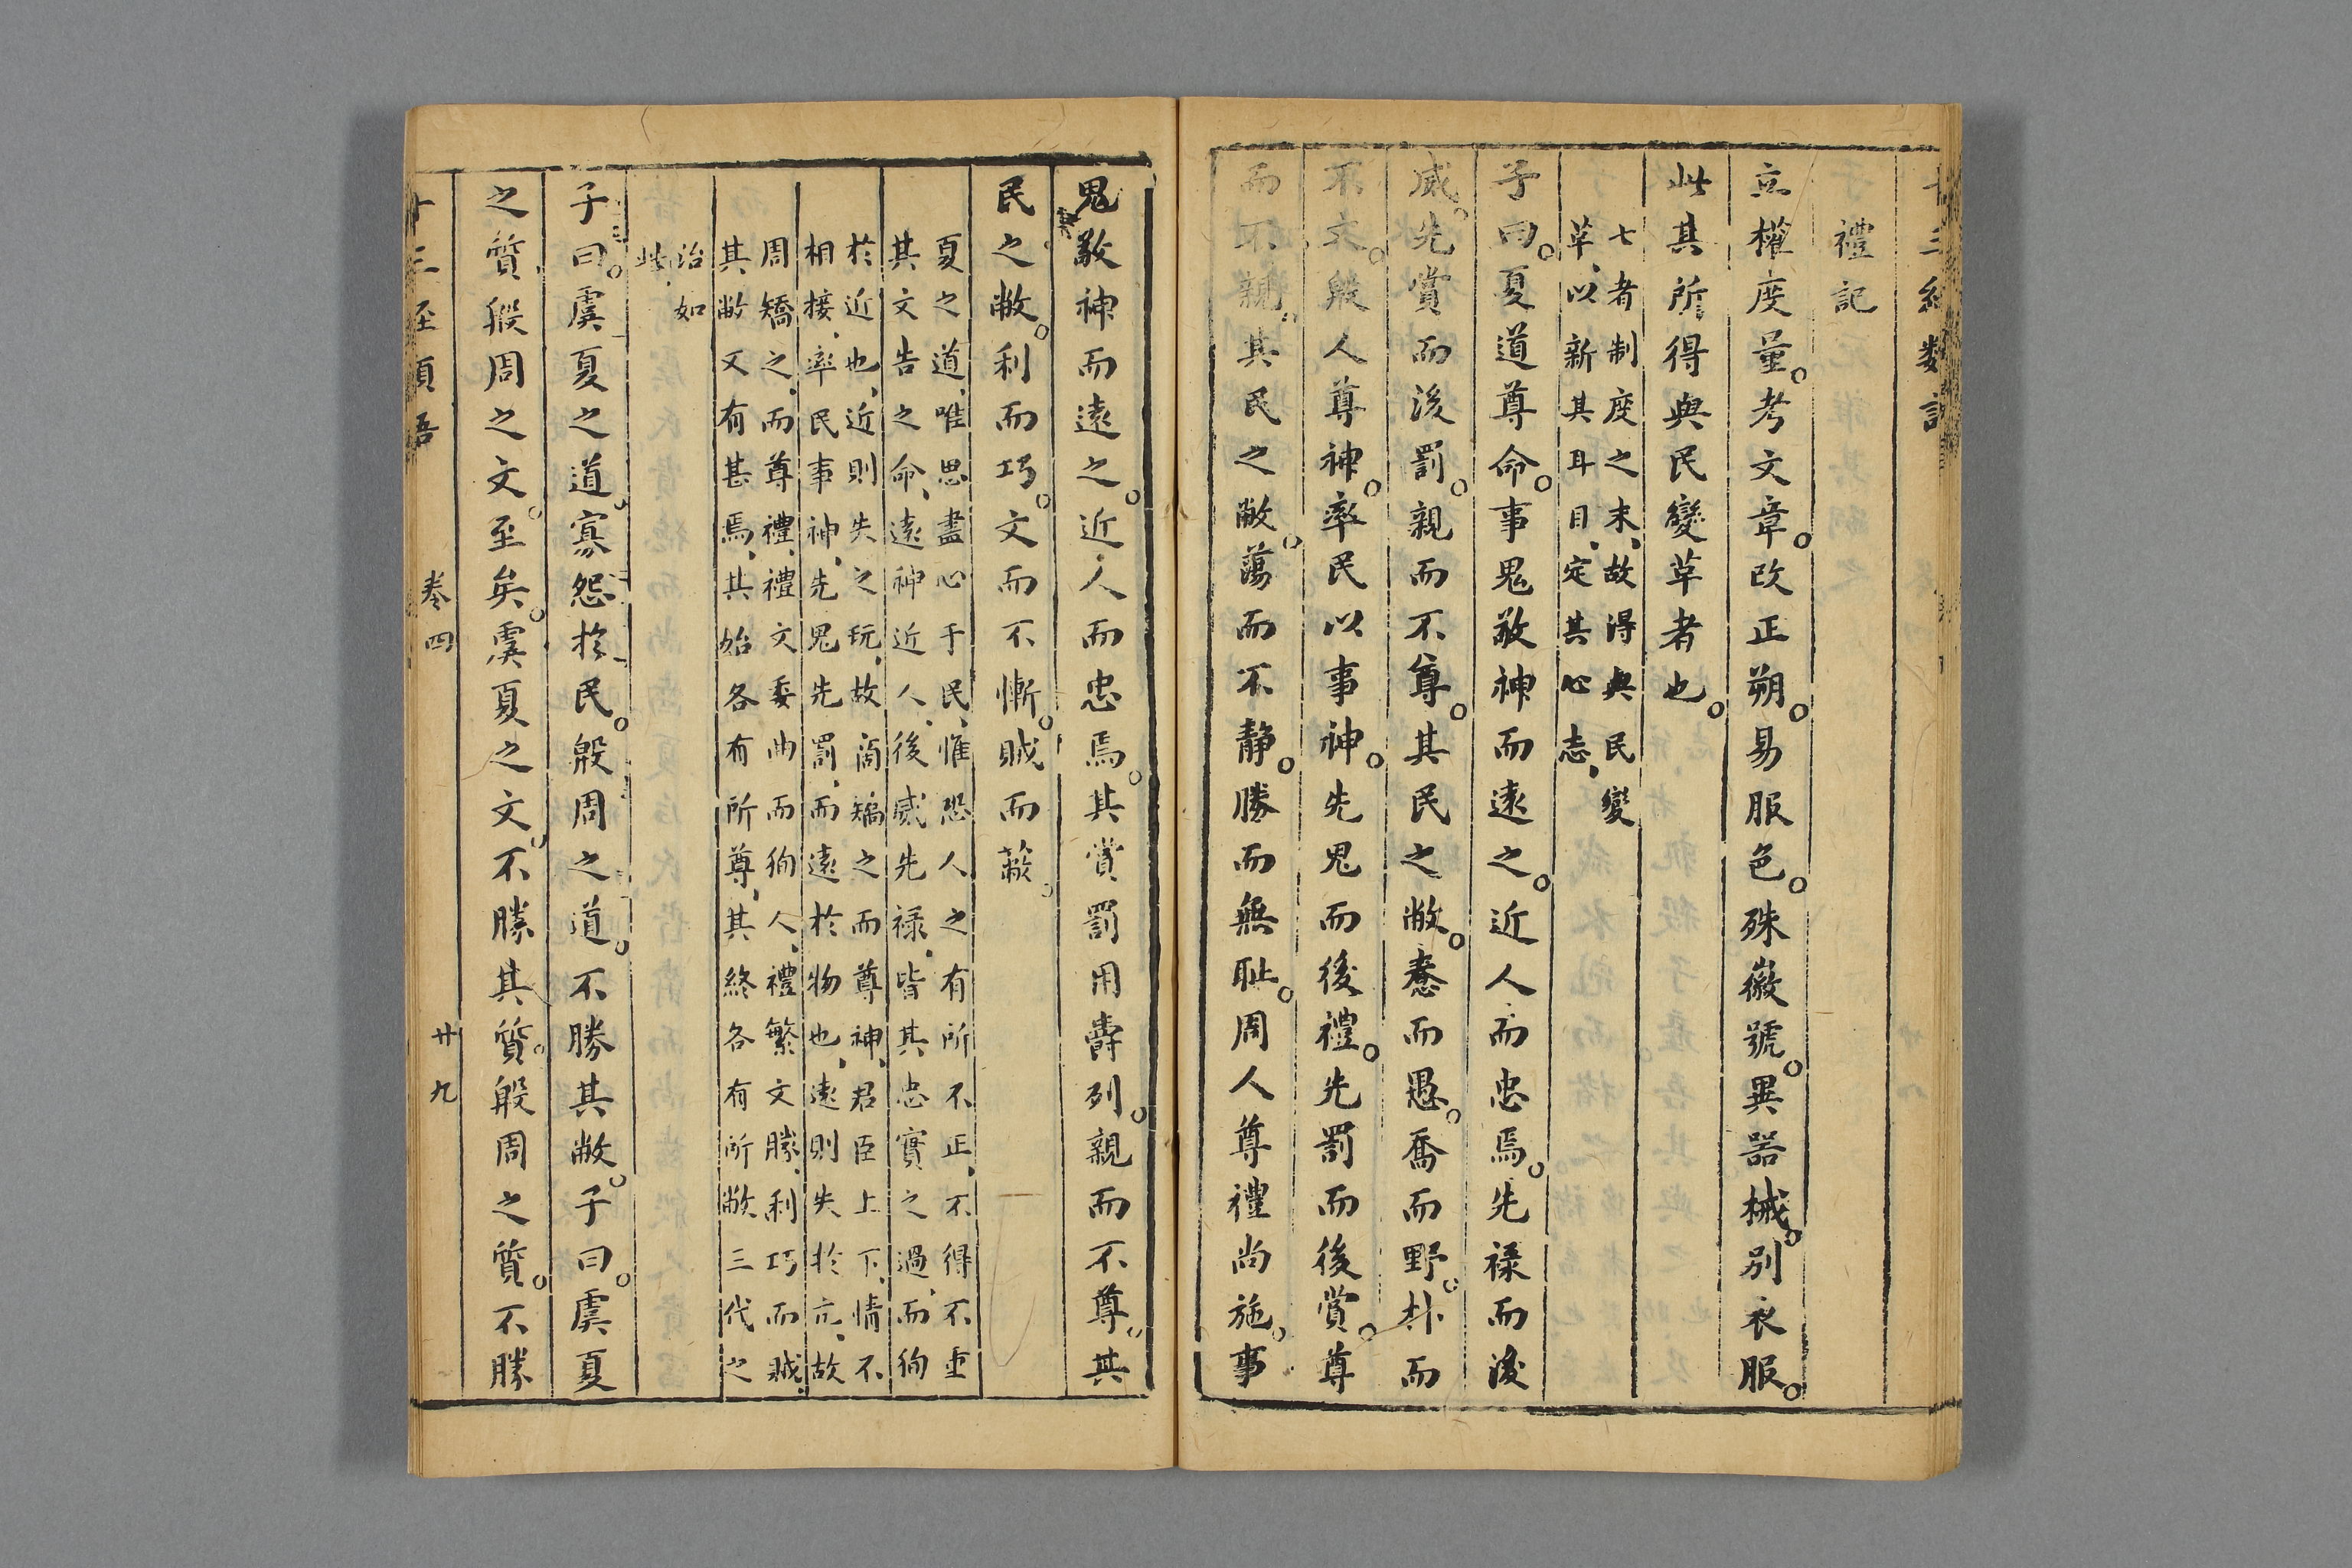 禮記
立權度量。考文章。改正朔。易服色。殊徽號。異器械。別衣服。
此其所得與民變革者也。
七者制度之末、故得與民變
革、以新其耳目、定其心志、
子曰。夏道尊命。事鬼敬神而遠之。近人而忠焉。先祿而後
威。先賞而後罰。親而不尊。其民之敝。惷而愚。喬而野。朴而
不文。殷人尊神。率民以事神。先鬼而後禮。先罰而後賞。尊
而不親。其民之敝。蕩而不静。勝而無耻。周人尊禮尚施。事
鬼敬神而遠之。近人而忠焉。其賞罰用壽列。親而不尊。其
民之敝。利而巧。文而不慚。賊而蔽。
夏之道、唯思盡心于民、惟恐人之有所不正、不得不重
其文告之命、遠神近人、後威先祿、皆其忠實之過、而徇
於近也、近則失之玩、故商矯之而尊神、君臣上下、情不
相接、率民事神、先鬼先罰、而遠於物也、遠則失於亢、故
周矯之、而尊禮、禮文委曲而徇人、禮繁文勝、利巧而賊、
其敝又有甚焉、其始各有所尊、其終各有所敝三代之
治如
此、
子曰。虞夏之道。寡怨於民。殷周之道。不勝其敝。子曰。虞夏
之質。殷周之文。至矣。虞夏之文。不勝其質。殷周之質。不勝
卷四
廿九